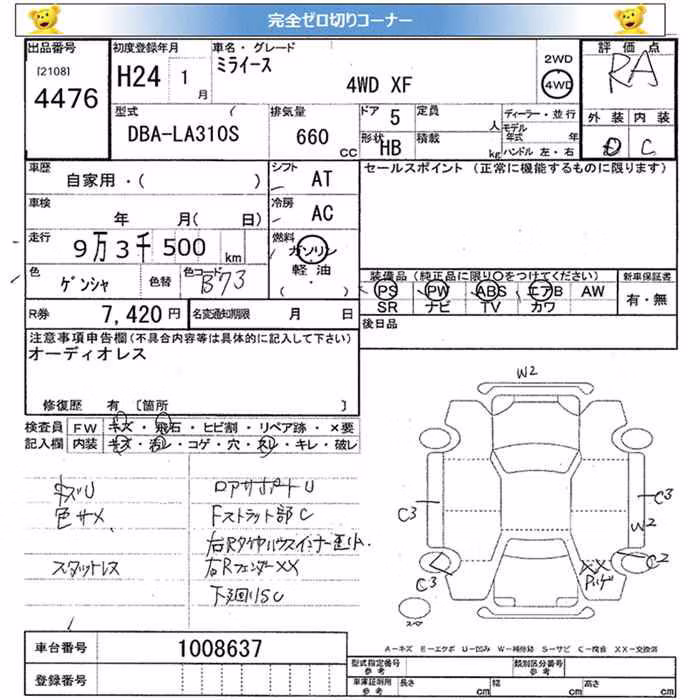 完全ゼロ切りコーナー
出品番号 初度登録年月 車名・グレード 評価点
[2108] ミライース 2WD
4476 H24 1月 4WD XF 4WD RA
型式 排気量 ドア 定員 ディーラー・並行 外装 内装
DBA-LA310S 660 CC 5 人 モデル年式 年 D C
形状 積載
HB kg ハンドル 左・右
車歴 シフト セールスポイント (正常に機能するものに限ります)
自家用・( ) AT
車検 冷房
年 月( 日) AC
走行 燃料
9万3千500 km ガソリン
軽油
( ・ )
色 色替 色コード 装備品 (純正品に限り○をつけてください) 新車保証書
ゲンシャ B73 PS PW ABS エアB AW 有・無
SR ナビ TV カワ
R券 7,420円 名変通知期限 月 日 後日品
注意事項申告欄(不具合内容等は具体的に記入して下さい)
オーディオレス
修復歴 有 [箇所 ]
検査員 FW キズ・飛石・ヒビ割・リペア跡・×要
記入欄 内装 キズ・汚レ・コゲ・穴・スレ・キレ・破レ
キズU ロアサポートU
色サメ Fストラット部C
スタットレス 右Rフェンダー××
下廻りSC
W2
C3
C3
W2
C2
C3
××
A-キズ E-エクボ U-凹み W-補修跡 S-サビ C-腐食 XX-交換済
車台番号 1008637
登録番号
型式指定番号 参考 類別区分番号 参考
車庫証明用 参考 長さ cm 幅 cm 高さ cm